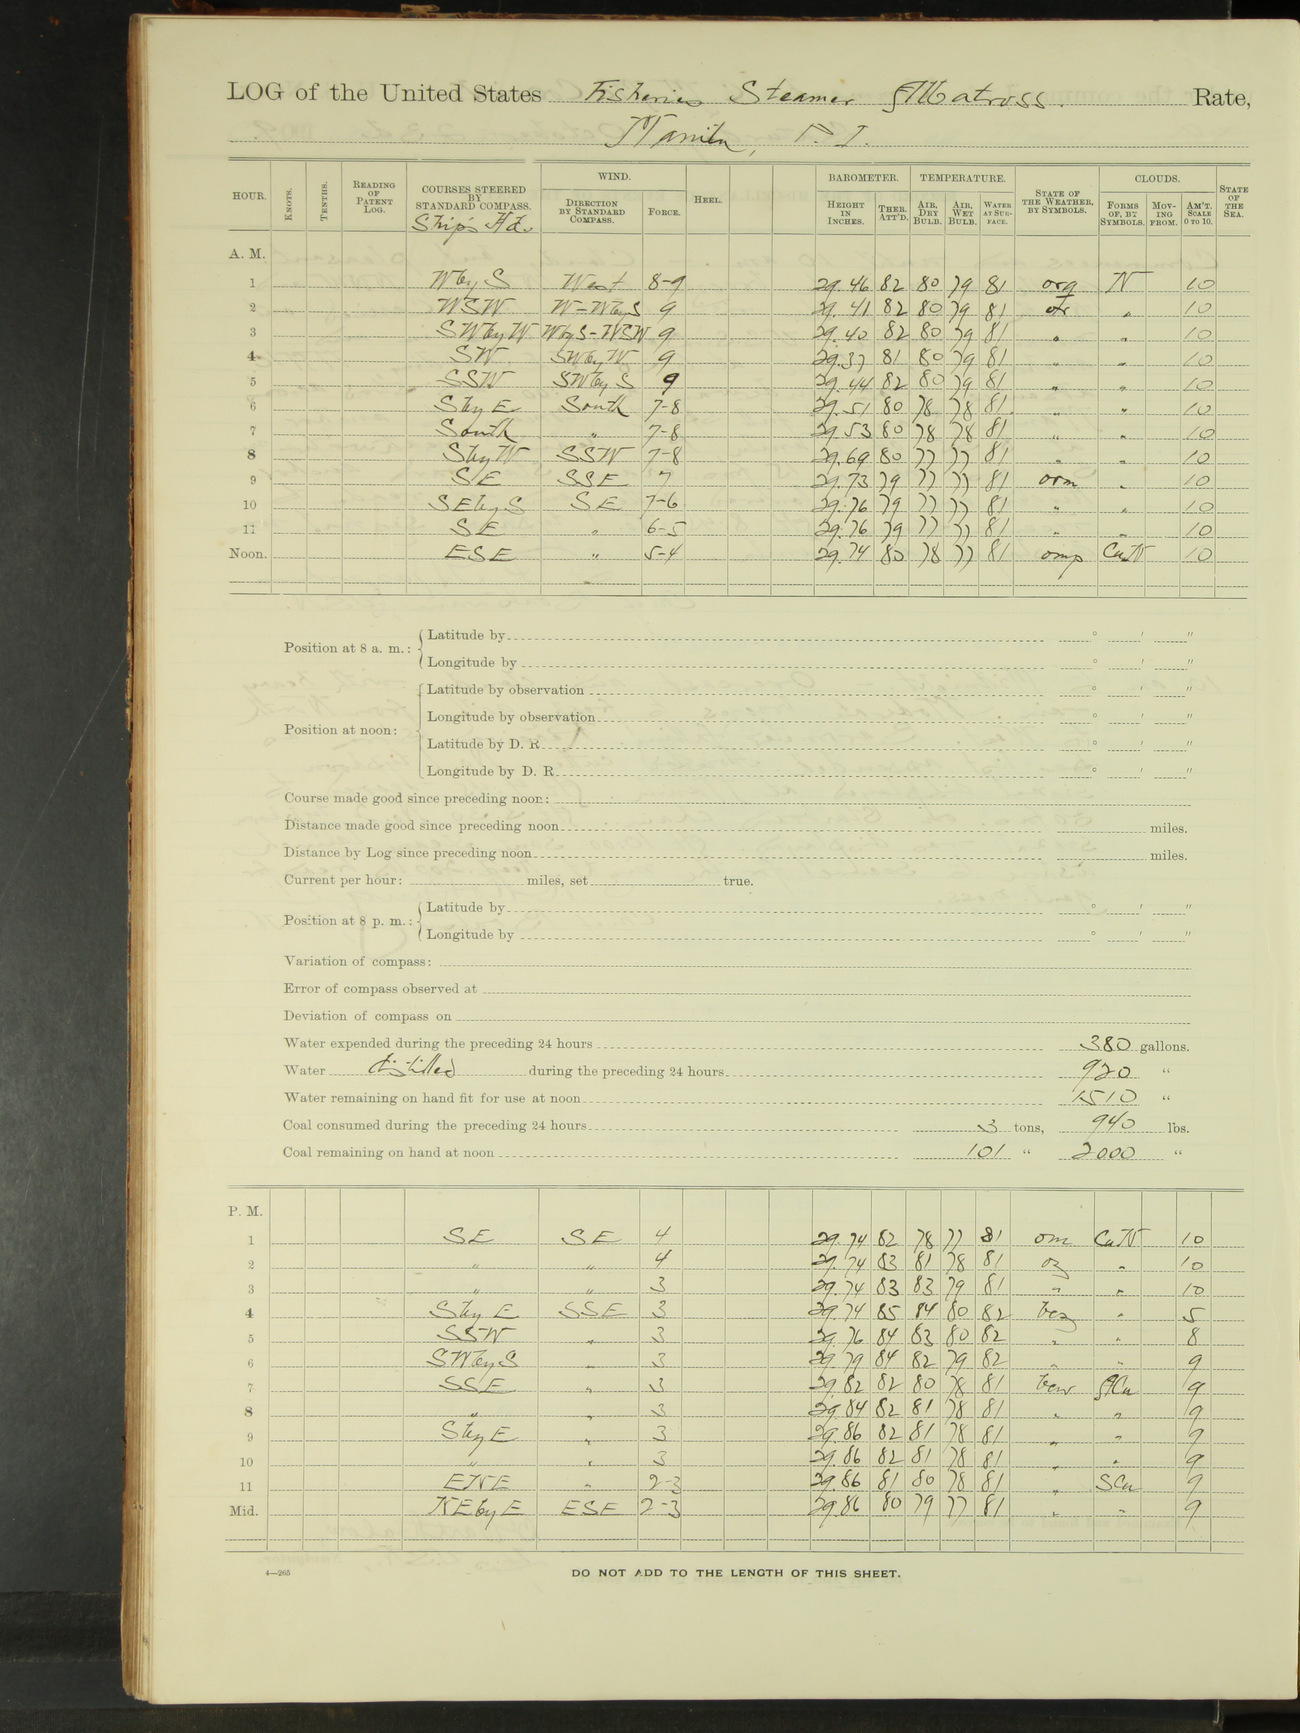 LOG of the United States Fisheries Steamer Albatross. Rate,
Manila, P. I.
HOUR. KNOTS. TENTHS. READING OF PATENT LOG. COURSES STEERED BY STANDARD COMPASS. WIND. DIRECTION BY STANDARD COMPASS. FORCE. HEEL. BAROMETER. HEIGHT IN INCHES. THER. ATT'D. TEMPERATURE. AIR, DRY BULB. AIR, WET BULB. WATER AT SURFACE. STATE OF THE WEATHER, BY SYMBOLS. CLOUDS. FORMS OF, BY SYMBOLS. MOVING FROM. AM'T. SCALE 0 TO 10. STATE OF THE SEA.
Ship's Hd.
A. M.
1 W by S West 8-9 29.46 82 80 79 81 orq N 10
2 WSW W-WbyS 9 29.41 82 80 79 81 or " 10
3 SWbyW WbyS-WSW 9 29.40 82 80 79 81 " " 10
4 SW SWbyW 9 29.37 81 80 79 81 " " 10
5 SSW SWbyS 9 29.44 82 80 79 81 " " 10
6 SbyE South 7-8 29.51 80 78 78 81 " " 10
7 South " 7-8 29.53 80 78 78 81 " " 10
8 SbyW SSW 7-8 29.69 80 77 77 81 " " 10
9 SE SSE 7 29.73 79 77 77 81 orm " 10
10 SEbyS SE 7-6 29.76 79 77 77 81 " " 10
11 SE " 6-5 29.76 79 77 77 81 " " 10
Noon. ESE " 5-4 29.74 80 78 77 81 omp CuN 10
Position at 8 a. m.: Latitude by ° ' "
Longitude by ° ' "
Position at noon: Latitude by observation ° ' "
Longitude by observation ° ' "
Latitude by D. R. ° ' "
Longitude by D. R. ° ' "
Course made good since preceding noon:
Distance made good since preceding noon miles.
Distance by Log since preceding noon miles.
Current per hour: miles, set true.
Position at 8 p. m.: Latitude by ° ' "
Longitude by ° ' "
Variation of compass:
Error of compass observed at
Deviation of compass on
Water expended during the preceding 24 hours 380 gallons.
Water distilled during the preceding 24 hours 920 "
Water remaining on hand fit for use at noon 1510 "
Coal consumed during the preceding 24 hours 3 tons, 940 lbs.
Coal remaining on hand at noon 101 " 2000 "
P. M.
1 SE SE 4 29.74 82 78 77 81 om CuN 10
2 " " 4 29.74 83 81 78 81 oz " 10
3 " " 3 29.74 83 83 79 81 " " 10
4 SbyE SSE 3 29.74 85 84 80 82 bcz " 5
5 SSW " 3 29.76 84 83 80 82 " " 8
6 SWbyS " 3 29.79 84 82 79 82 " " 9
7 SSE " 3 29.82 82 80 78 81 bcw ACu 9
8 " " 3 29.84 82 81 78 81 " " 9
9 SbyE " 3 29.86 82 81 78 81 " " 9
10 " " 3 29.86 82 81 78 81 " " 9
11 ENE " 2-3 29.86 81 80 78 81 " SCu 9
Mid. NEbyE ESE 2-3 29.86 80 79 77 81 " " 9
4—265
DO NOT ADD TO THE LENGTH OF THIS SHEET.